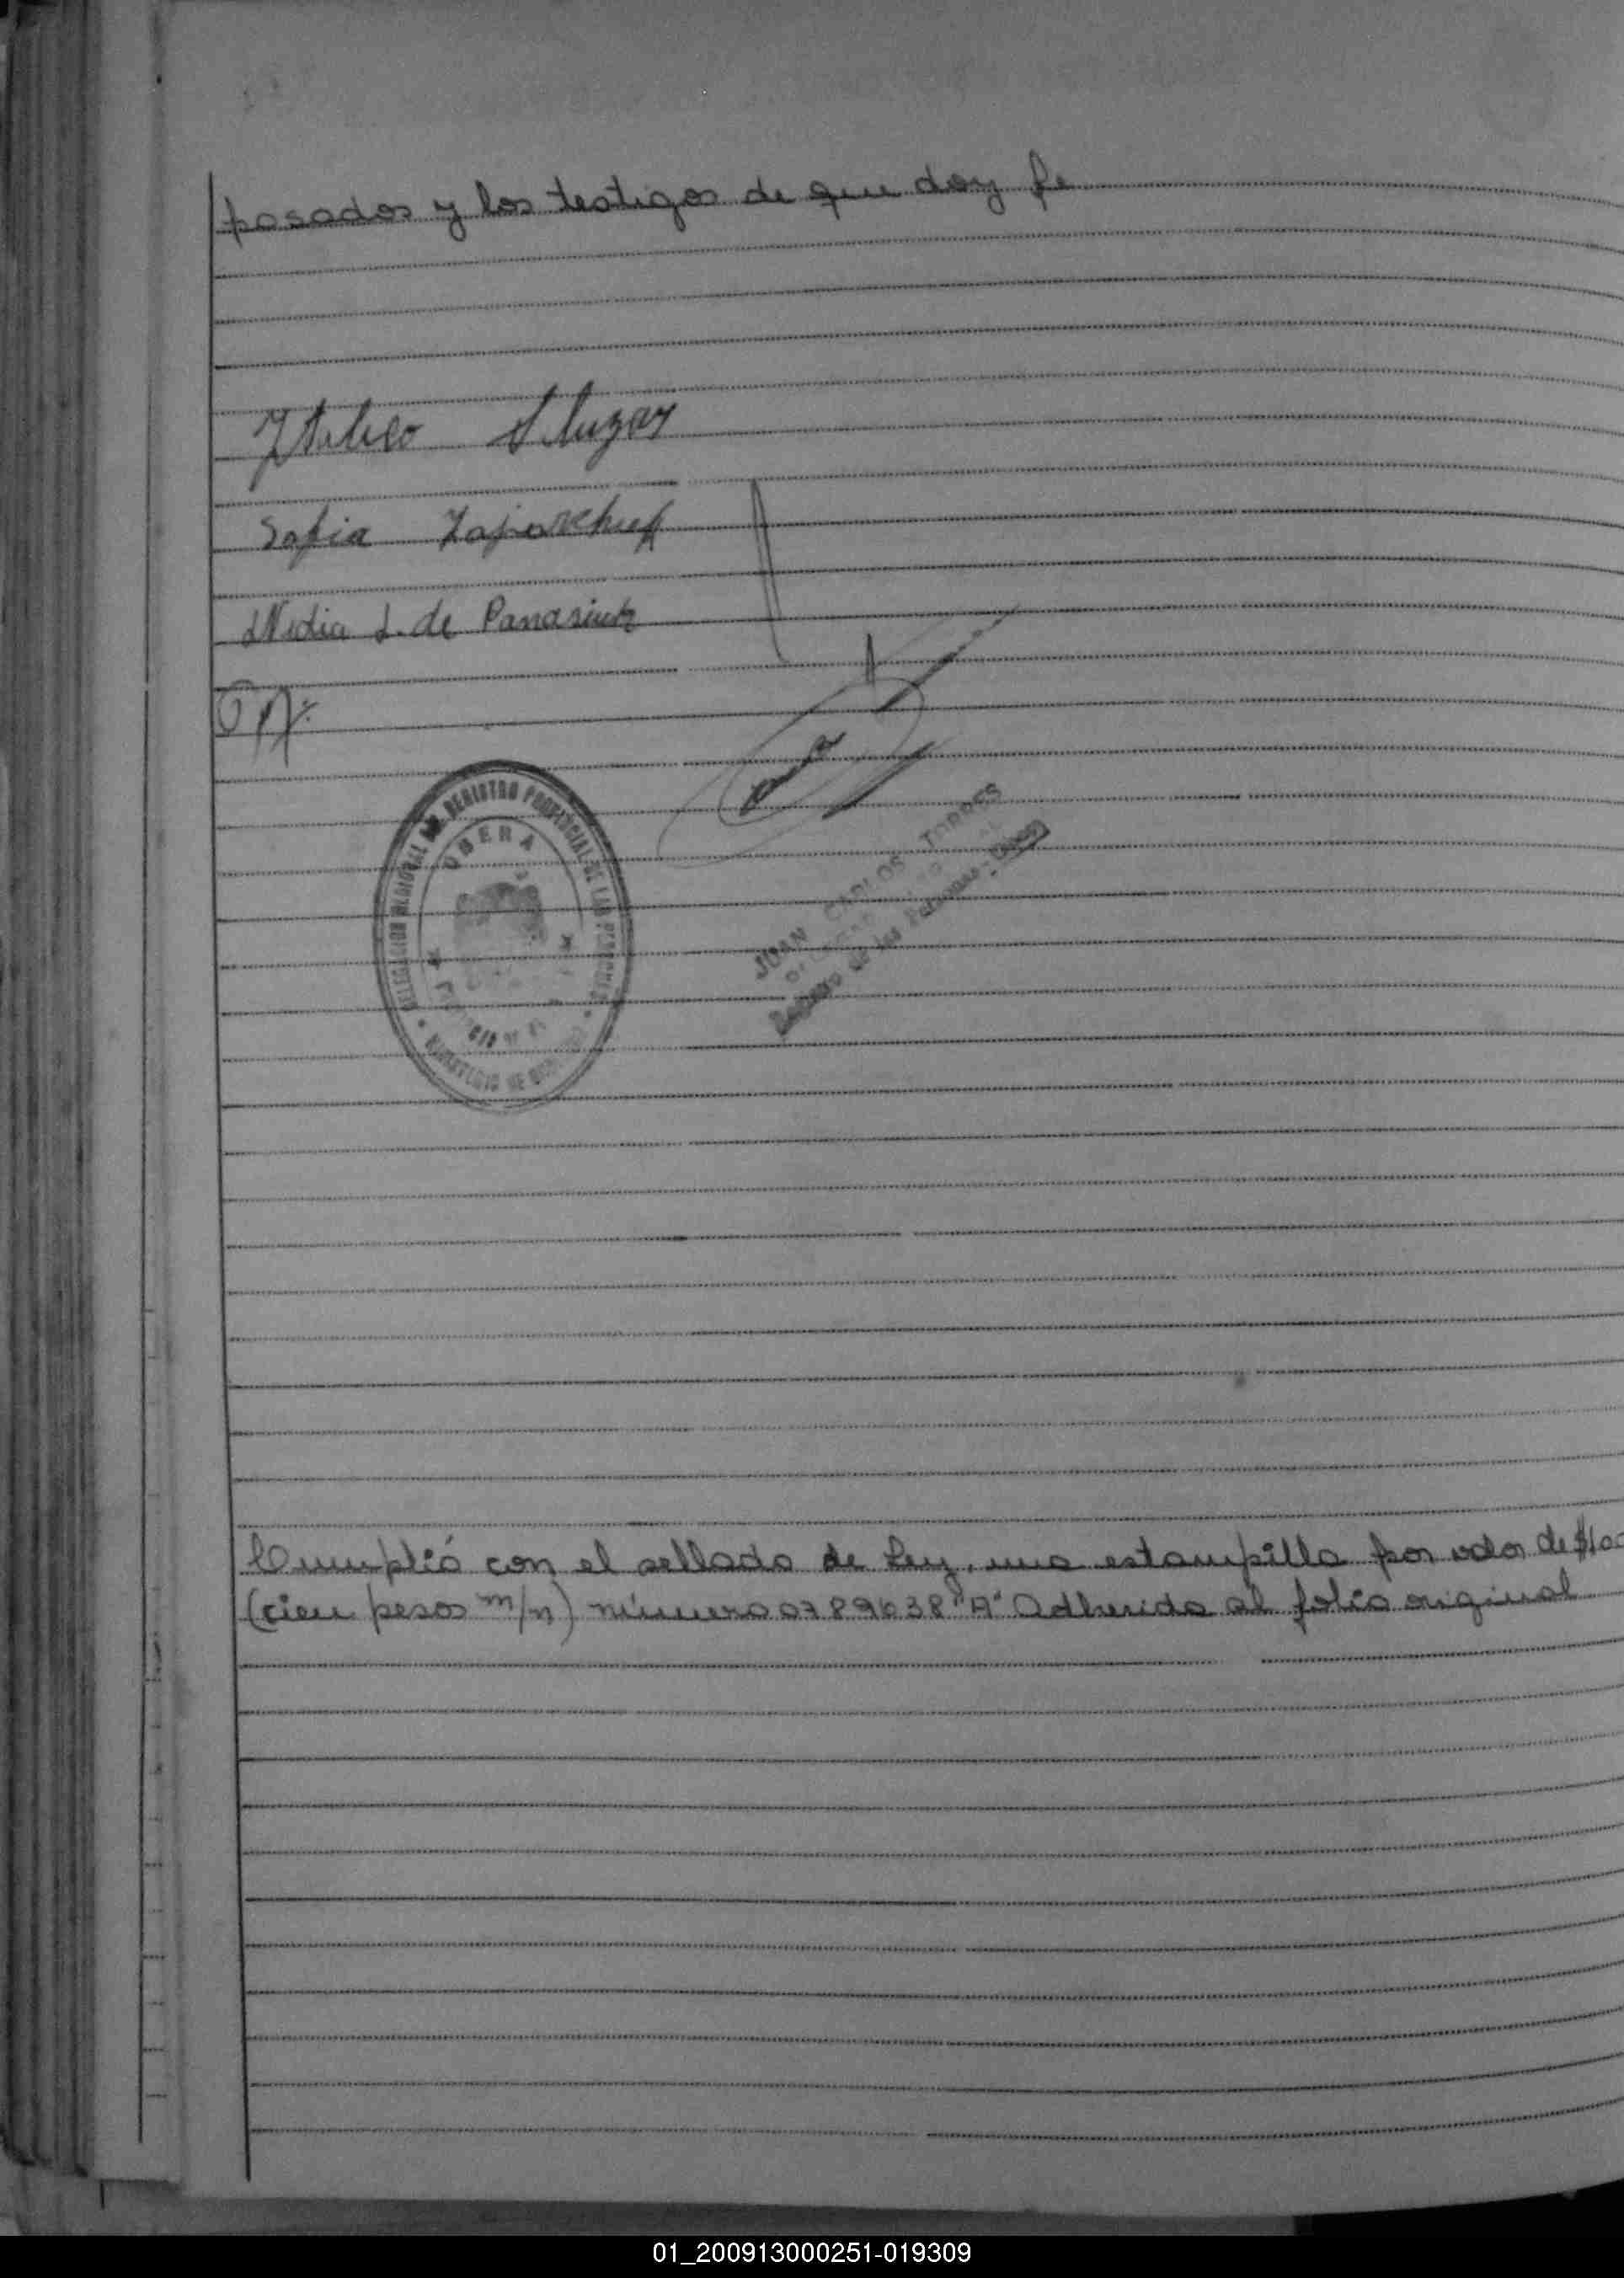 posados y los testigos de que doy fe
Sofia
Nidia L. de Panasiuk
DELEGACION REGIONAL DEL REGISTRO PROVINCIAL DE LAS PERSONAS
OBERA
MINISTERIO DE
JUAN CARLOS TORRES
Registro de las Personas - Oberá
Cumplió con el sellado de Ley, una estampilla por valor de $100
(cien pesos m/n) número 0789638 "A" Adherida al folio original
01_200913000251-019309